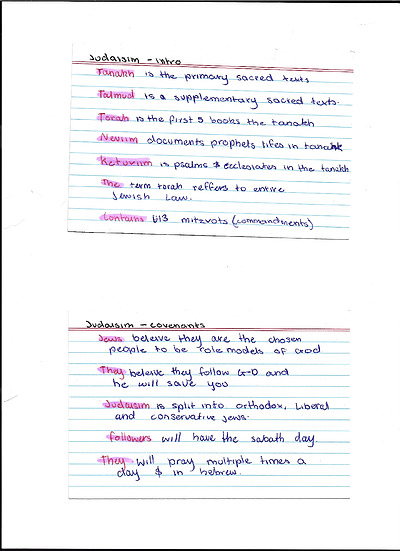 Judaisim - intro
Tanakh is the primary sacred texts
Talmud is a supplementary sacred texts.
Torah is the first 5 books the tanakh
Neviim documents prophets lifes in tanakh
Ketuviim is psalms & ecclesiates in the tanakh
The term torah reffers to entire
Jewish Law.
Contains 613 mitzvots (commandments)
Judaisim - covenants
Jews beleive they are the chosen
people to be role models of God
They beleive they follow G-D and
he will save you
Judaisim is split into orthodox, Liberal
and conservative jews.
followers will have the sabath day.
They will pray multiple times a
day & in hebrew.